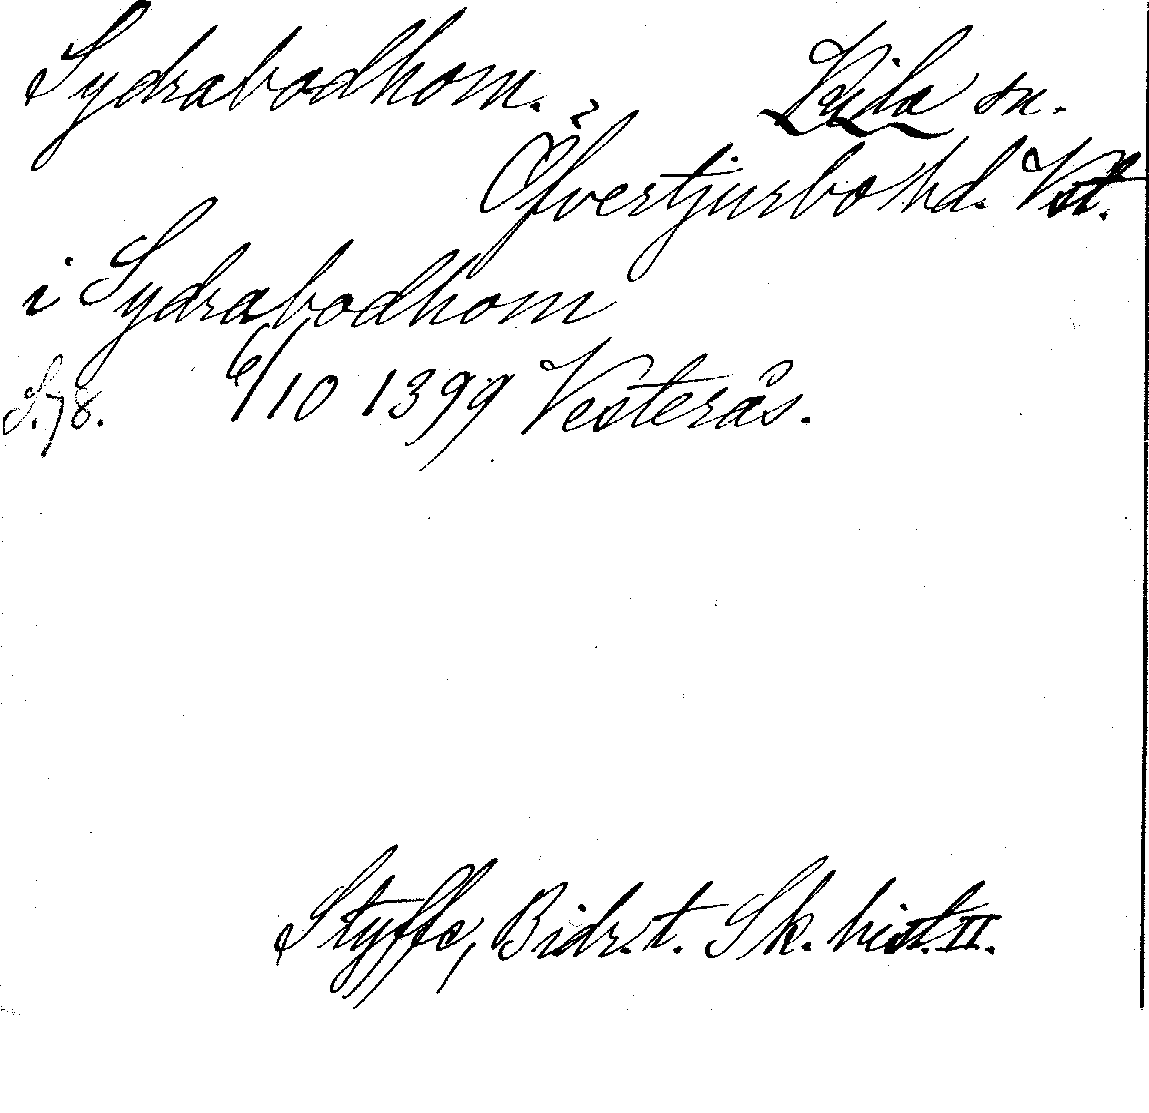 Sydrabodhom. ? Kila sn.
Öfvertjurbo hd. Vstl.
i Sydrabodhom
S. 78. 6/10 1399 Vesterås.
Styffe, Bidr. t. Sk. hist. II.